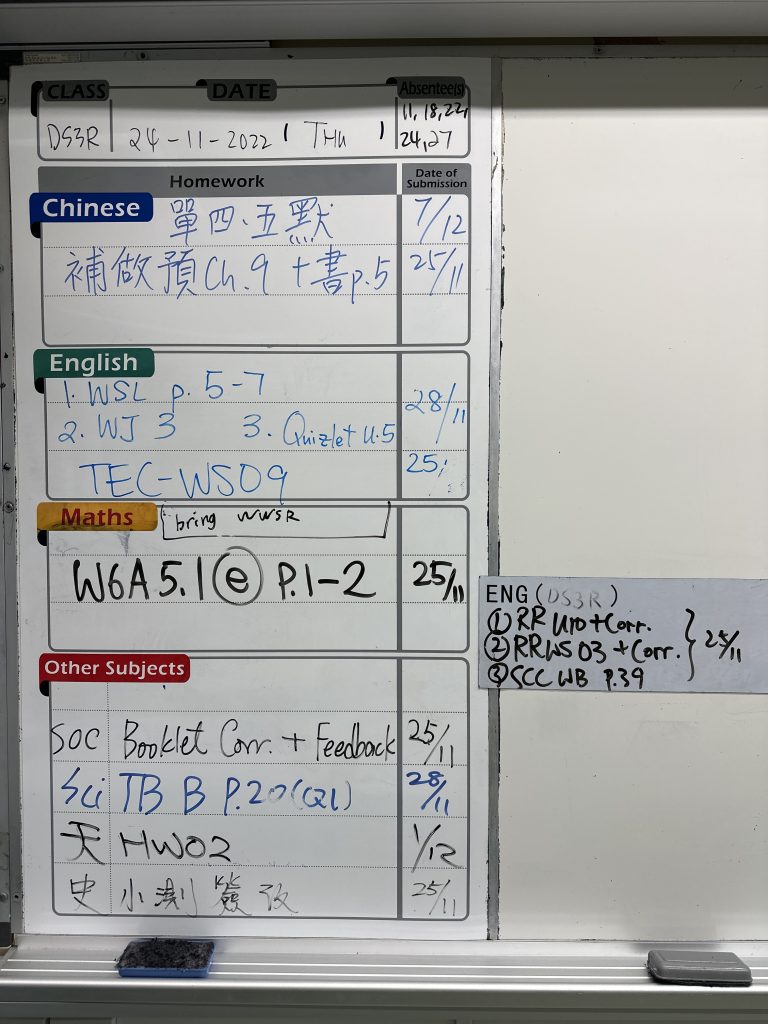 CLASS DATE Absentee(s)
11, 18, 22,
DS3R 24-11-2022 ( THU ) 24, 27
Homework Date of Submission
Chinese 單四、五默 7/12
補做預Ch.9 + 書p.5 25/11
English
1. WSL p. 5-7
2. WJ 3 3. Quizlet U.5 28/11
TEC-WS09 25/
Maths bring WWSR
W6A 5.1 ⓔ P.1-2 25/11
Other Subjects
SOC Booklet Corr. + Feedback 25/11
Sci TB B P.20 (Q1) 28/11
天 HW02 1/12
史 小測簽改 25/11
ENG (DS3R)
① RR U10 + Corr.
② RRWS 03 + Corr. } 25/11
③ SCC WB P.39